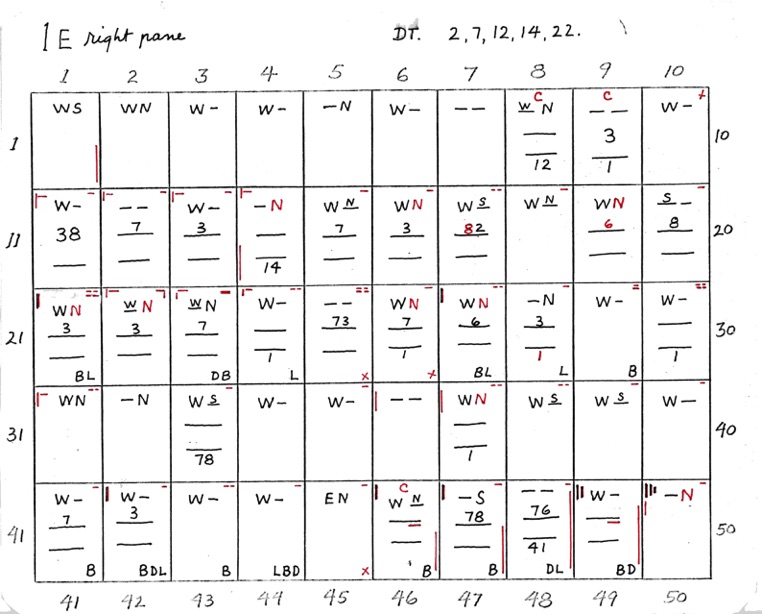 1E right pane DT. 2, 7, 12, 14, 22.
1 2 3 4 5 6 7 8 9 10
C C
1 WS WN W- W- -N W- -- WN -- W- + 10
3
12 1
11 W- -- W- -N WN WN WS WN WN S- 20
38 7 3 7 3 82 6 8
14
21 WN WN WN W- -- WN WN -N W- W- 30
3 3 7 73 7 6 3
1 1 1 1
BL DB L x x BL L B
31 WN -N WS W- W- -- WN WS WS W- 40
78 1
C
41 W- W- W- W- EN WN -S -- W- -N 50
7 3 78 76
41
B BDL B LBD x B B DL BD
41 42 43 44 45 46 47 48 49 50